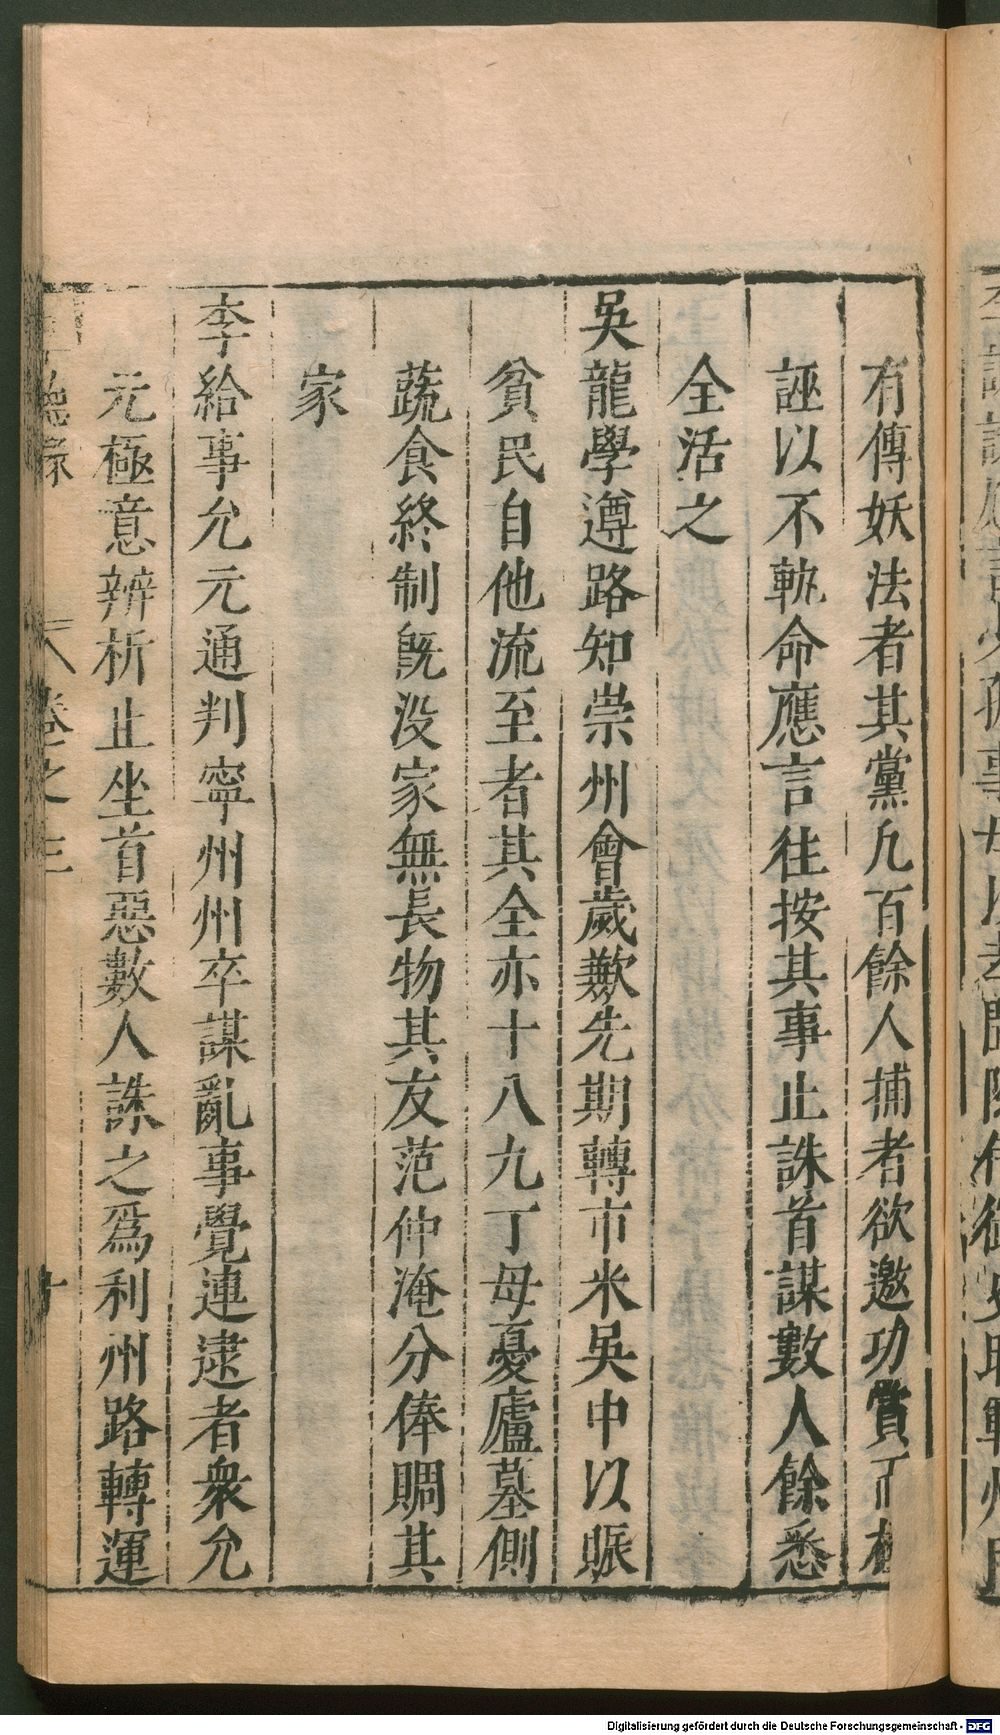 有傳妖法者其黨凢百餘人捕者欲邀功賞
誣以不軌命應言往按其事止誅首謀數人餘悉
全活之
吳龍學遵路知崇州會歲歉先期轉市米吳中以賑
貧民自他流至者其全亦十八九丁母憂廬墓側
蔬食終制旣没家無長物其友范仲淹分俸賙其
家
李給事允元通判寧州州卒謀亂事覺連逮者衆允
元極意辨析止坐首惡數人誅之爲利州路轉運
德录
卷之三
十
Digitalisierung gefördert durch die Deutsche Forschungsgemeinschaft - DFG